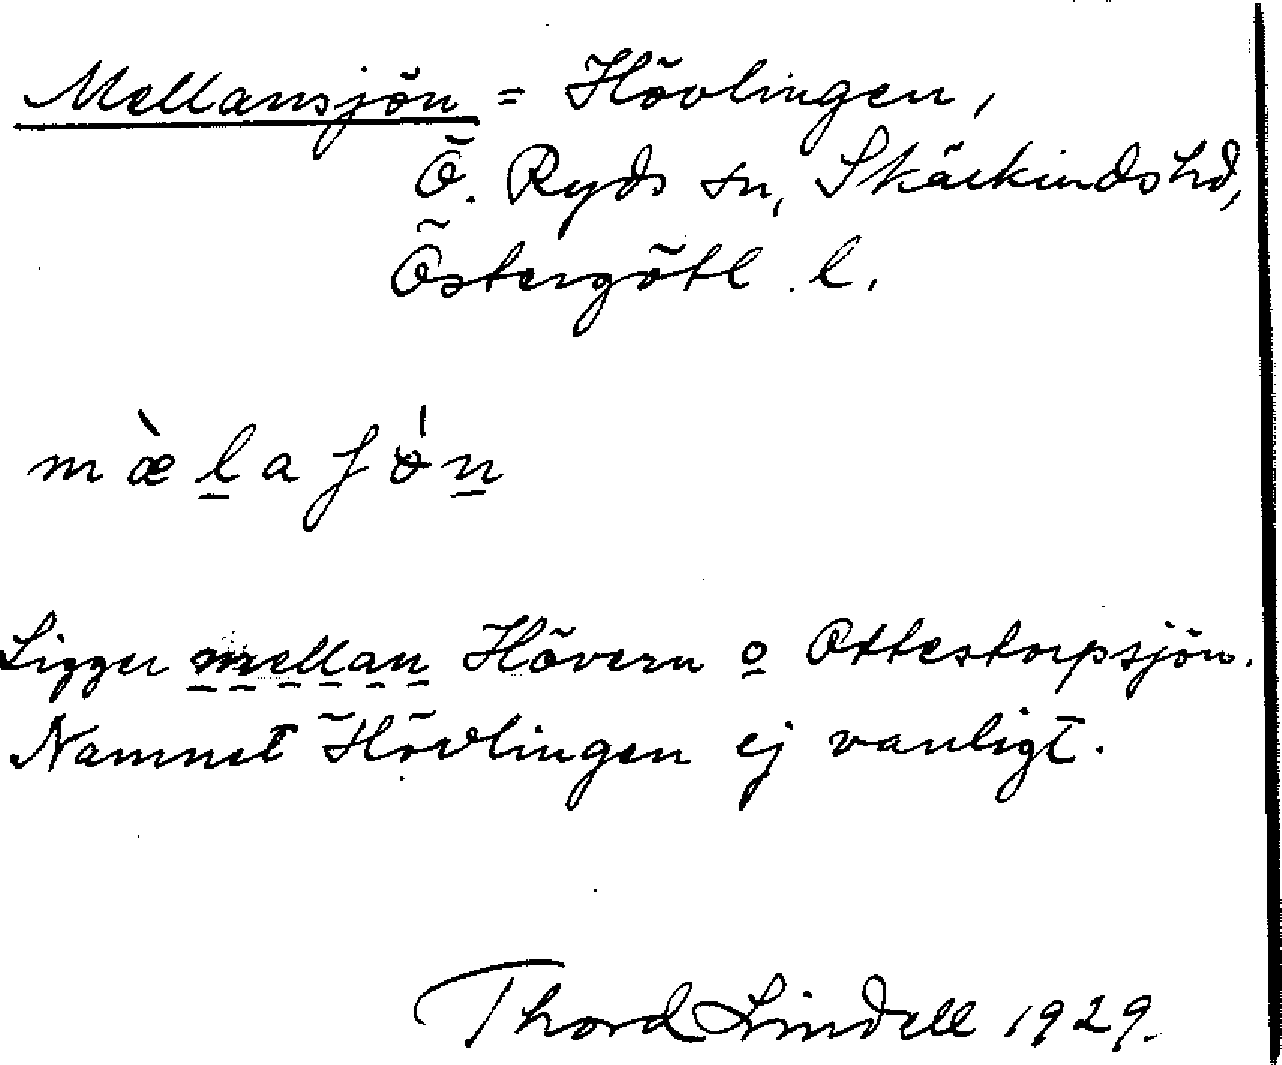 Mellansjön = Hövlingen,
Ö. Ryds sn, Skärkinds hd,
Östergötl. l.
mæ̀l̲aʃɵ́n̲
Ligger mellan Hövern o Ottestorpsjön.
Namnet Hövlingen ej vanligt.
Thord Lindell 1929.